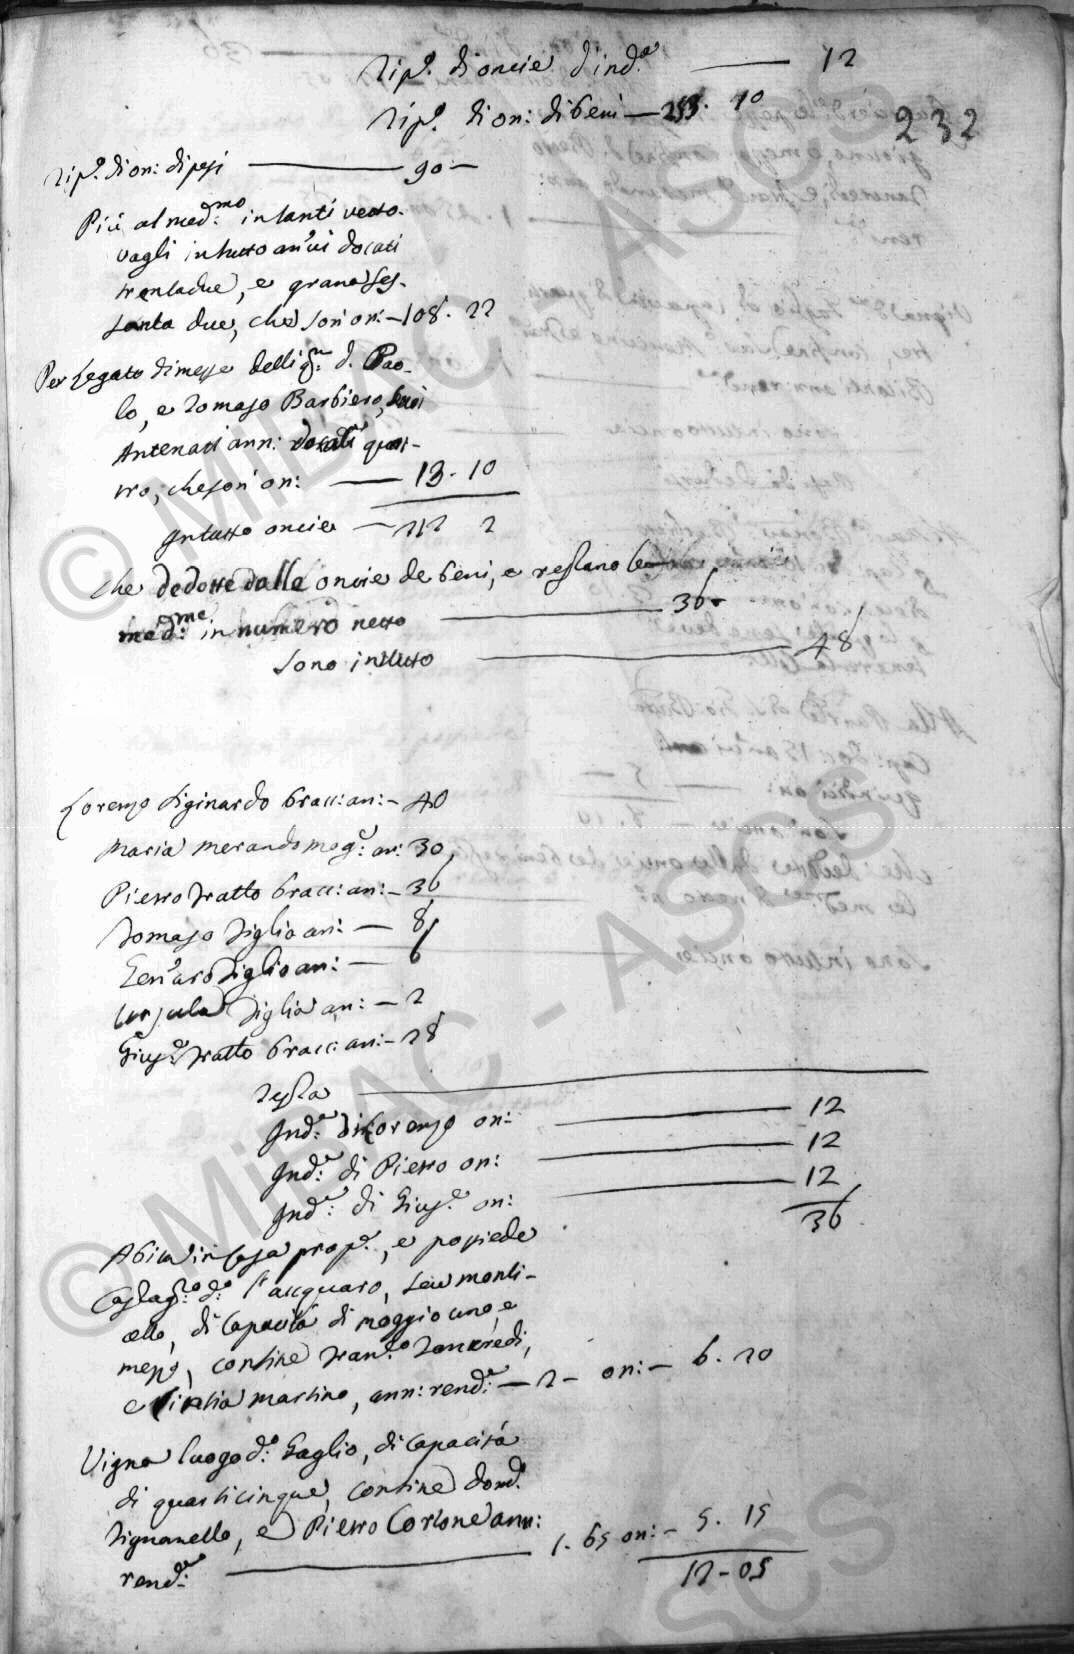 Rip.º di oncie d'ind.ª — 12
Rip.º di on: di beni — 253. 10
232
Rip.º di on: di pesi — 90 —
Più al med:mo in tanti vetto-
vagli in tutto an'ui docati
trentadue, e grana ses-
santa due, che son on: — 108. 22
Per Legato di messe delli qm: d. Pao-
lo, e Tomaso Barbiero, suoi
Antenati ann: docati quat-
tro, che son on: — 13. 10
In tutto oncie — 212 2
che dedotte dalle oncie de beni, e restano le
med:me in numero netto — 36
Sono in tutto — 48
Lorenzo Liginardo bracc: an: — 40
Maria Merando mog:e an: 30
Pietro Fratto bracc: an: — 36
Tomaso Figlio an: — 8
Gen'aro Figlio an: — 6
Ursula Figlia an: — 2
Gius:e Fratto bracc: an: — 28
Testa
Ind:ª di Lorenzo on: — 12
Ind:ª di Pietro on: — 12
Ind:ª di Gius:e on: — 12
36
Abita in Casa prop:ª, e possiede
Castag:to d:o l'acquaro, seu monti-
cello, di capacità di moggio uno, e
mezzo, confine Fran:co Tancredi,
e Cintia Martino, ann: rend:ª — 2 — on: — 6. 20
Vigna luogo d:o Gaglio, di capacità
di quarti cinque, confine Dom:co
Signanello, e Pietro Corlone ann:
rend:ª — 1. 65 on: — 5. 15
12 - 05
© MiBAC - ASCS
© MiBAC - ASCS
ASCS